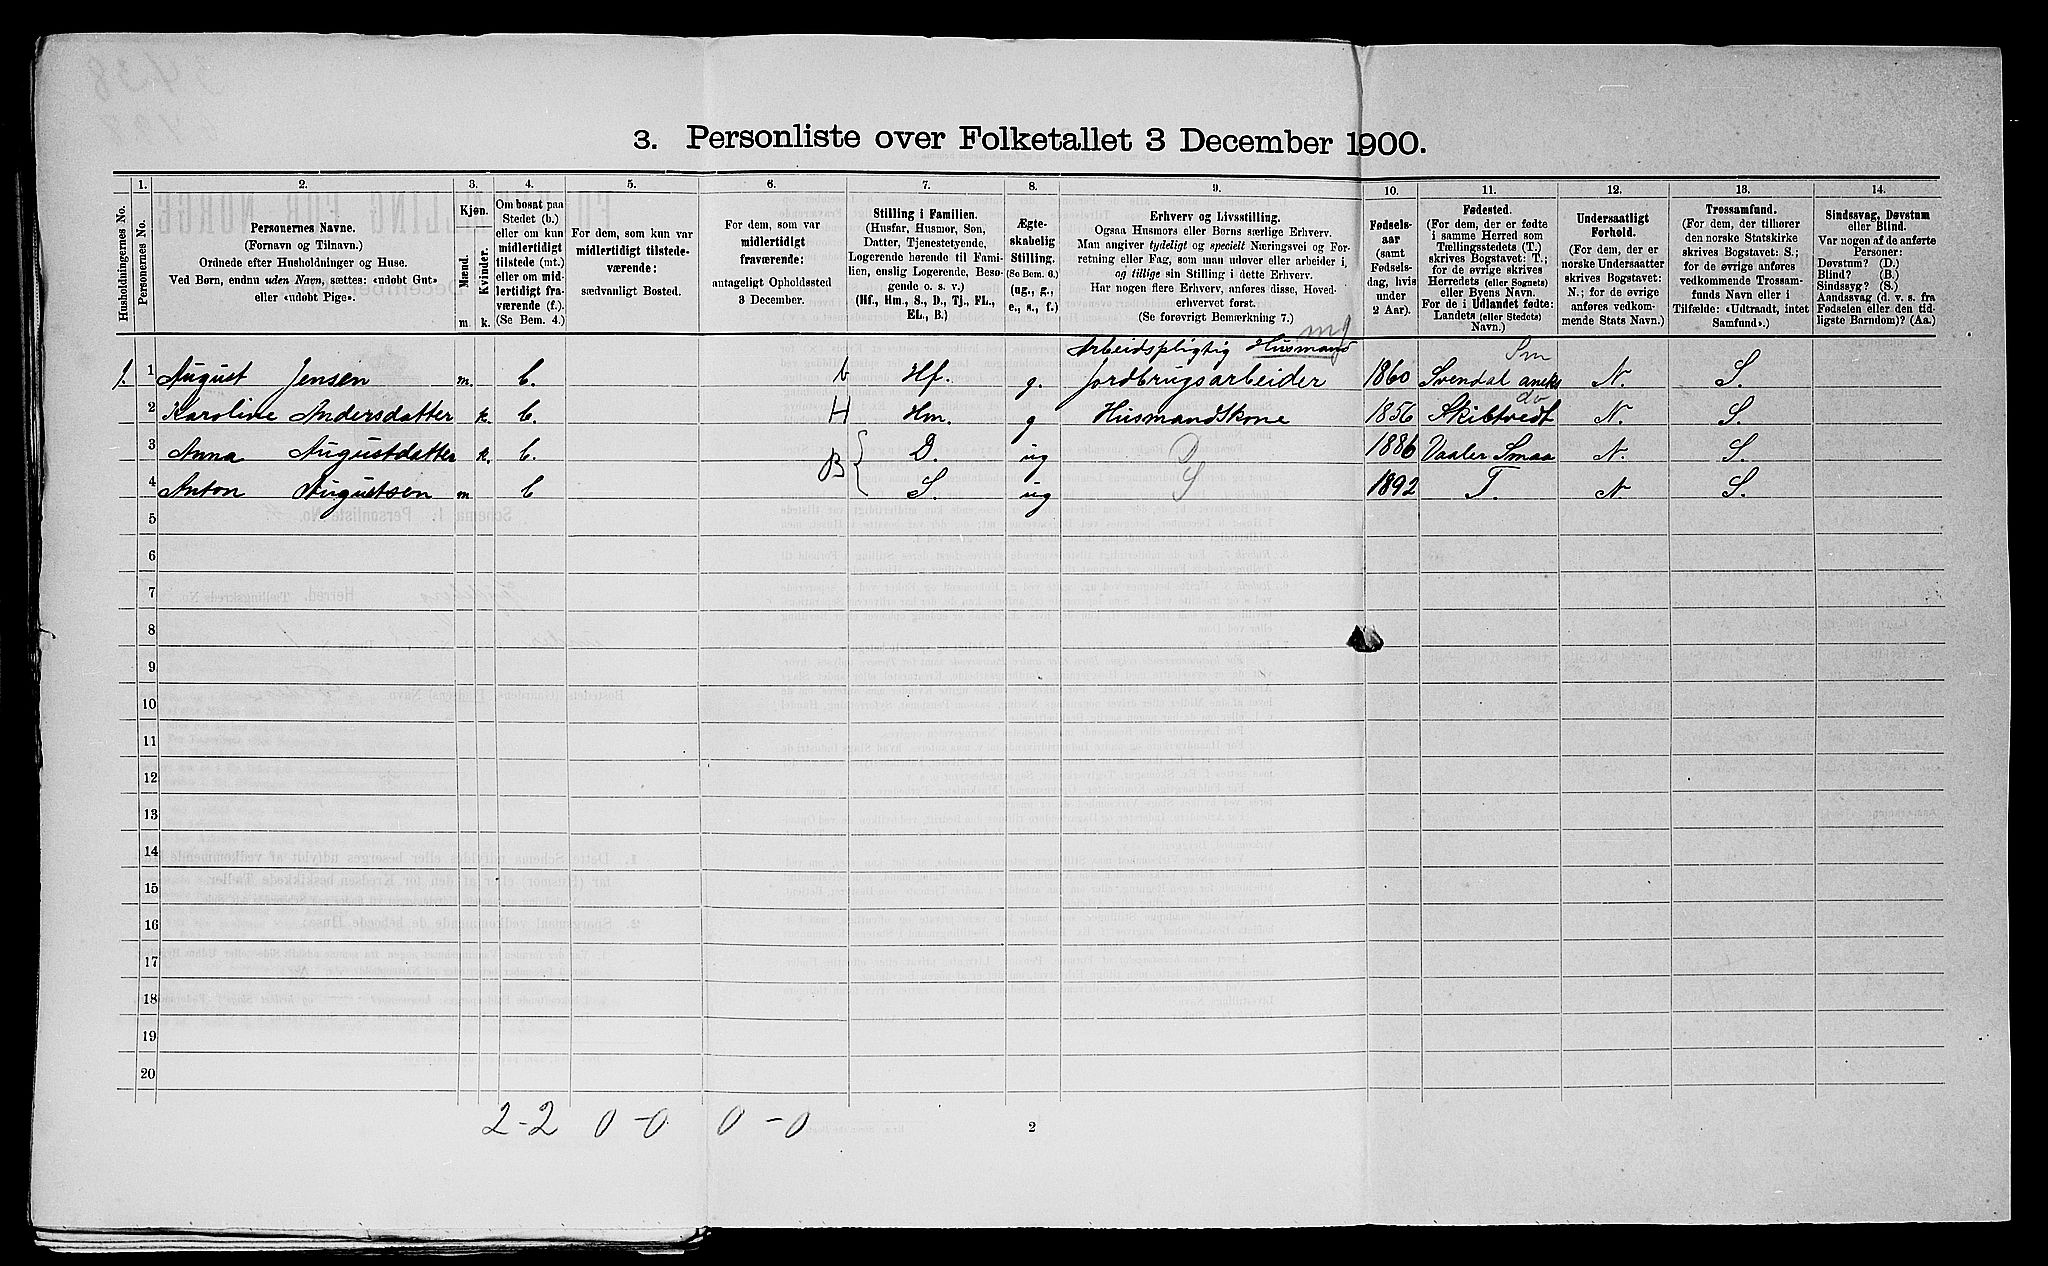 3. Personliste over Folketallet 3 December 1900.
Husholdningernes No.
1. 2. 3. 4. 5. 6. 7. 8. 9. 10. 11. 12. 13. 14.
Personernes No.
Personernes Navne.
(Fornavn og Tilnavn.)
Ordnede efter Husholdninger og Huse.
Ved Børn, endnu uden Navn, sættes: «udøbt Gut»
eller «udøbt Pige».
Kjøn.
Mænd.
Kvinder.
m. k.
Om bosat paa
Stedet (b.)
eller om kun
midlertidigt
tilstede (mt.)
eller om mid-
lertidigt fra-
værende (f.).
(Se Bem. 4.)
For dem, som kun var
midlertidigt tilstede-
værende:
sædvanligt Bosted.
For dem, som var
midlertidigt
fraværende:
antageligt Opholdssted
3 December.
Stilling i Familien.
(Husfar, Husmor, Søn,
Datter, Tjenestetyende,
Logerende hørende til Fami-
lien, enslig Logerende, Besø-
gende o. s. v.)
(Hf., Hm., S., D., Tj., FL.,
EL., B.)
Ægte-
skabelig
Stilling.
(Se Bem. 6.)
(ug., g.,
e., s., f.)
Erhverv og Livsstilling.
Ogsaa Husmors eller Børns særlige Erhverv.
Man angiver tydeligt og specielt Næringsvei og For-
retning eller Fag, som man udøver eller arbeider i,
og tillige sin Stilling i dette Erhverv.
Har nogen flere Erhverv, anføres disse, Hoved-
erhvervet først.
(Se forøvrigt Bemærkning 7.)
Fødsels-
aar
(samt
Fødsels-
dag, hvis
under
2 Aar).
Fødested.
(For dem, der er fødte
i samme Herred som
Tællingsstedets (T.)
skrives Bogstavet: T.;
for de øvrige skrives
Herredets (eller Sognets)
eller Byens Navn.
For de i Udlandet fødte:
Landets (eller Stedets)
Navn.)
Undersaatligt
Forhold.
(For dem, der er
norske Undersaatter
skrives Bogstavet:
N.; for de øvrige
anføres vedkom-
mende Stats Navn.)
Trossamfund.
(For dem, der tilhører
den norske Statskirke
skrives Bogstavet: S.;
for de øvrige anføres
vedkommende Trossam-
funds Navn eller i
Tilfælde: «Udtraadt, intet
Samfund».)
Sindssvag, Døvstum
eller Blind.
Var nogen af de anførte
Personer:
Døvstum? (D.)
Blind? (B.)
Sindssyg? (S.)
Aandssvag (d. v. s. fra
Fødselen eller den tid-
ligste Barndom)? (Aa.)
Arbeidspligtig Husmand Sm
1. 1 August Jensen m. b. b Hf. g. Jordbrugsarbeider 1860 Svendal aneks N. S.
do
2 Karoline Andersdatter k. b. H Hm. g Husmandskone 1856 Skibtvedt N. S.
3 Anna Augustdatter k. b. B D. ug D 1886 Vaaler Smaa N. S.
4 Anton Augustsen m b S. ug S 1892 T. N. S.
5
6
7
8
9
10
11
12
13
14
15
16
17
18
19
20
2-2 0-0 0-0
2